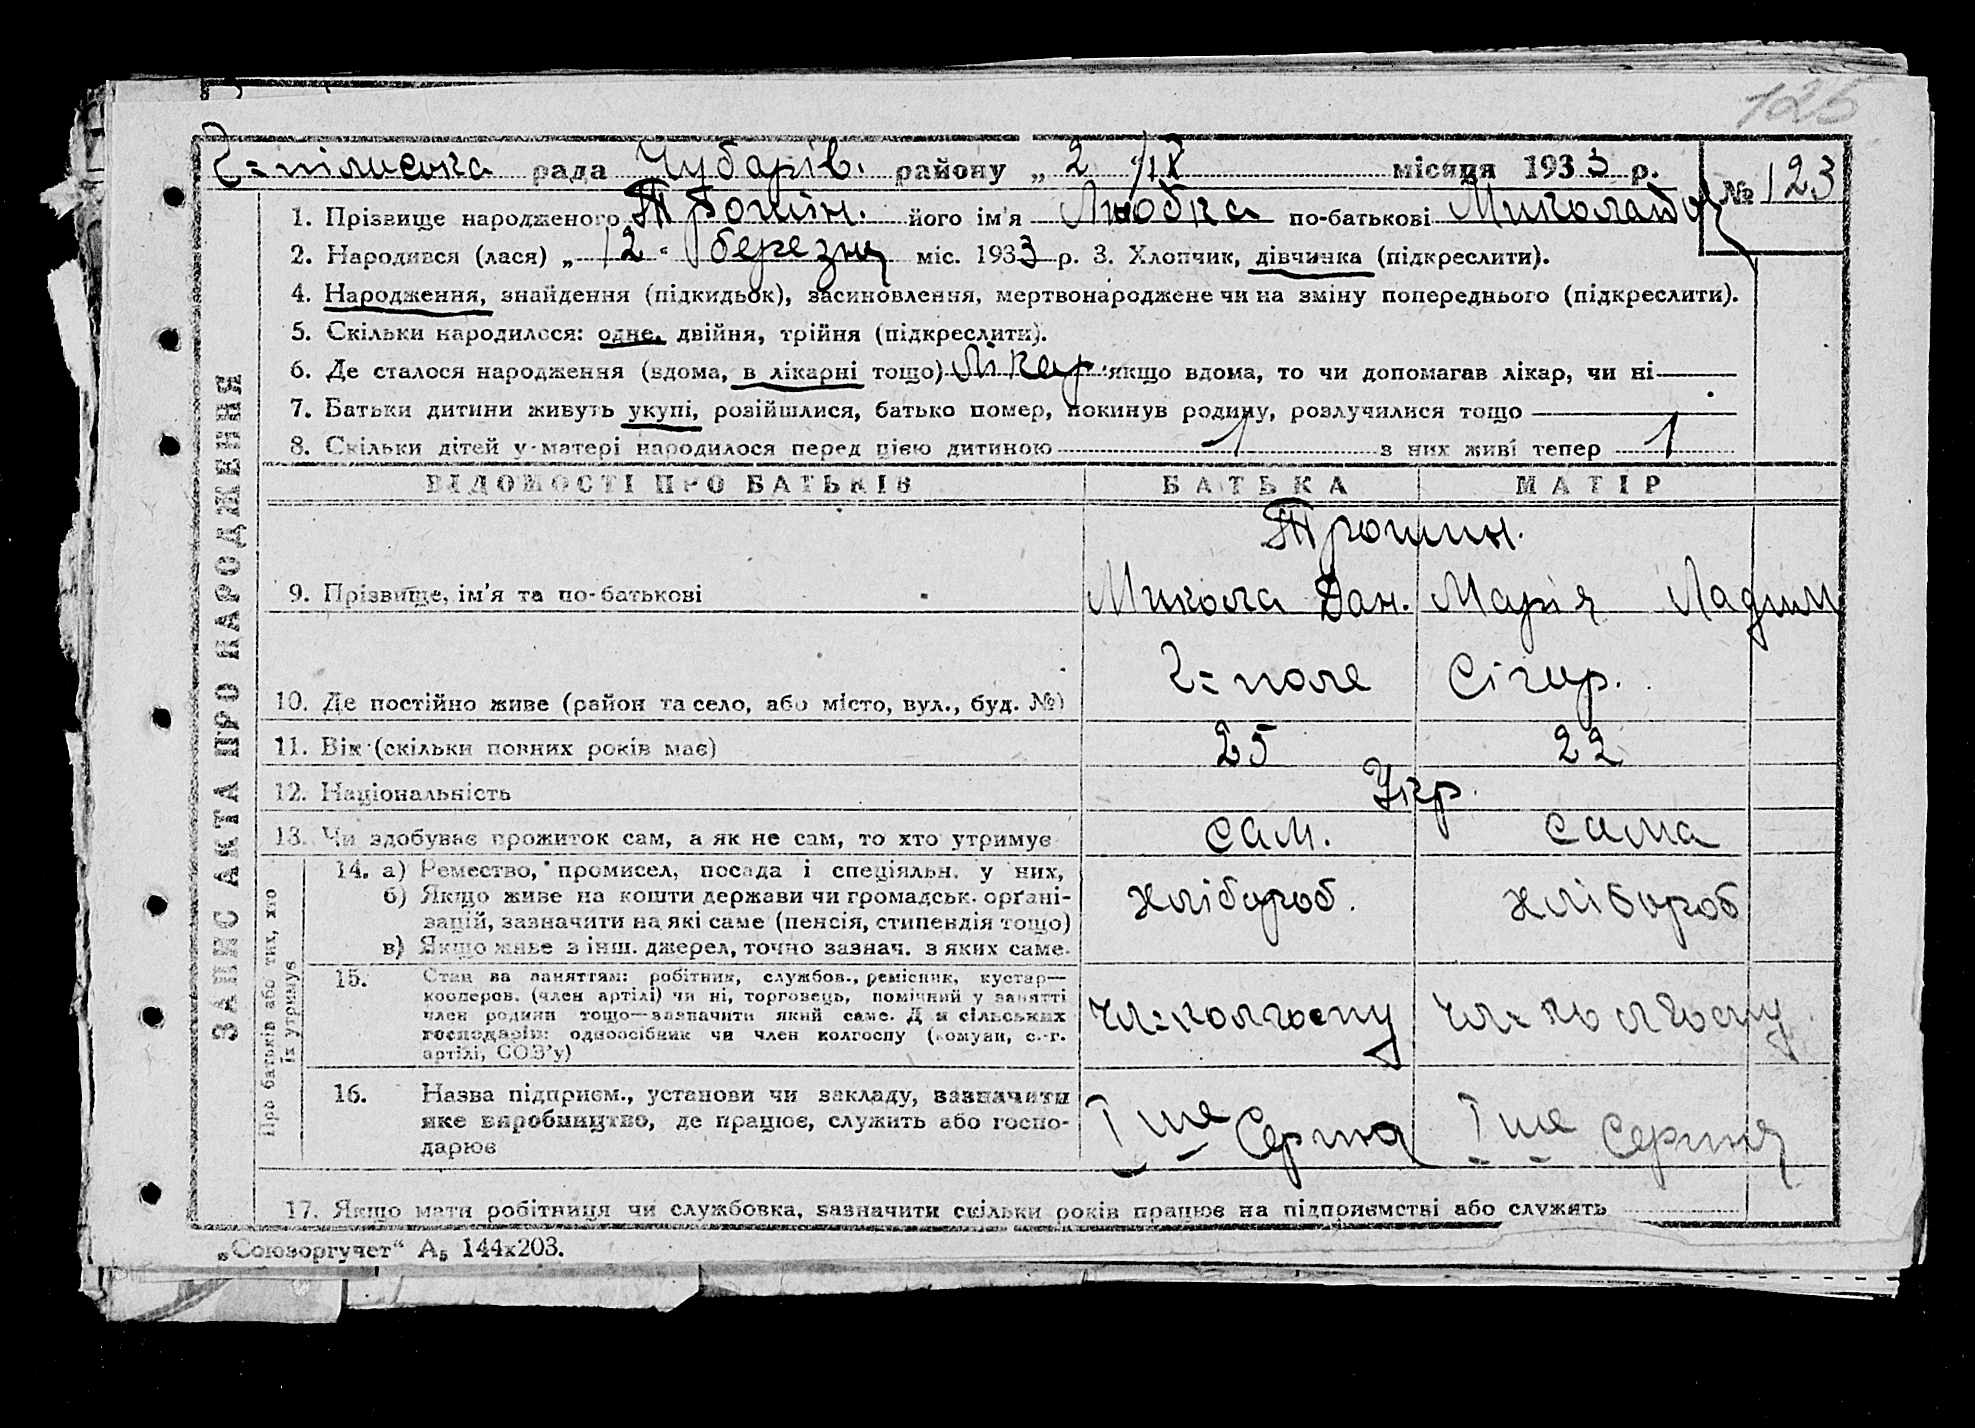 125
Г=пільська рада Чубарів. району „ 2 “ /IX місяця 1933 р. № 123
1. Прізвище народженого Трошин. його ім'я Любка по-батькові
2. Народився (лася) „ 12 “ березня міс. 1933 р. 3. Хлопчик, дівчинка (підкреслити).
4. Народження, знайдення (підкидьок), засиновлення, мертвонароджене чи на зміну попереднього (підкреслити).
5. Скільки народилося: одне, двійня, трійня (підкреслити).
6. Де сталося народження (вдома, в лікарні тощо) лікар. якщо вдома, то чи допомагав лікар, чи ні
7. Батьки дитини живуть укупі, розійшлися, батько помер, покинув родину, розлучилися тощо
8. Скільки дітей у матері народилося перед цією дитиною 1 з них живі тепер 1
ЗАПИС АКТА ПРО НАРОДЖЕННЯ
ВІДОМОСТІ ПРО БАТЬКІВ БАТЬКА МАТІР
Трошин.
9. Прізвище, ім'я та по-батькові Микола Дан. Марія
10. Де постійно живе (район та село, або місто, вул., буд. №) Г=поле
11. Вік (скільки повних років має) 25 22
12. Національність Укр.
13. Чи здобуває прожиток сам, а як не сам, то хто утримує сам. сама
Про батьків або тих, хто
їх утримує
14. а) Ремество, промисел, посада і спеціяльн. у них,
б) Якщо живе на кошти держави чи громадськ. орґані-
зацій, зазначити на які саме (пенсія, стипендія тощо)
в) Якщо живе з інш. джерел, точно зазнач. з яких саме.
хлібороб. хлібороб
15. Стан за заняттям: робітник, службов., ремісник, кустар—
кооперов. (член артілі) чи ні, торговець, помічний у занятті
член родини тощо—зазначити який саме. Для сільських
господарів: одноосібник чи член колгоспу (комуни, с.-г.
артілі, СОЗ'у)
чл=колгоспу чл=колгоспу
16. Назва підприєм., установи чи закладу, зазначити
яке виробництво, де працює, служить або госпо-
дарює
І ше Серпня І ше Серпня
17. Якщо мати робітниця чи службовка, зазначити скільки років працює на підприємстві або служить
„Союзоргучет“ А₅ 144х203.